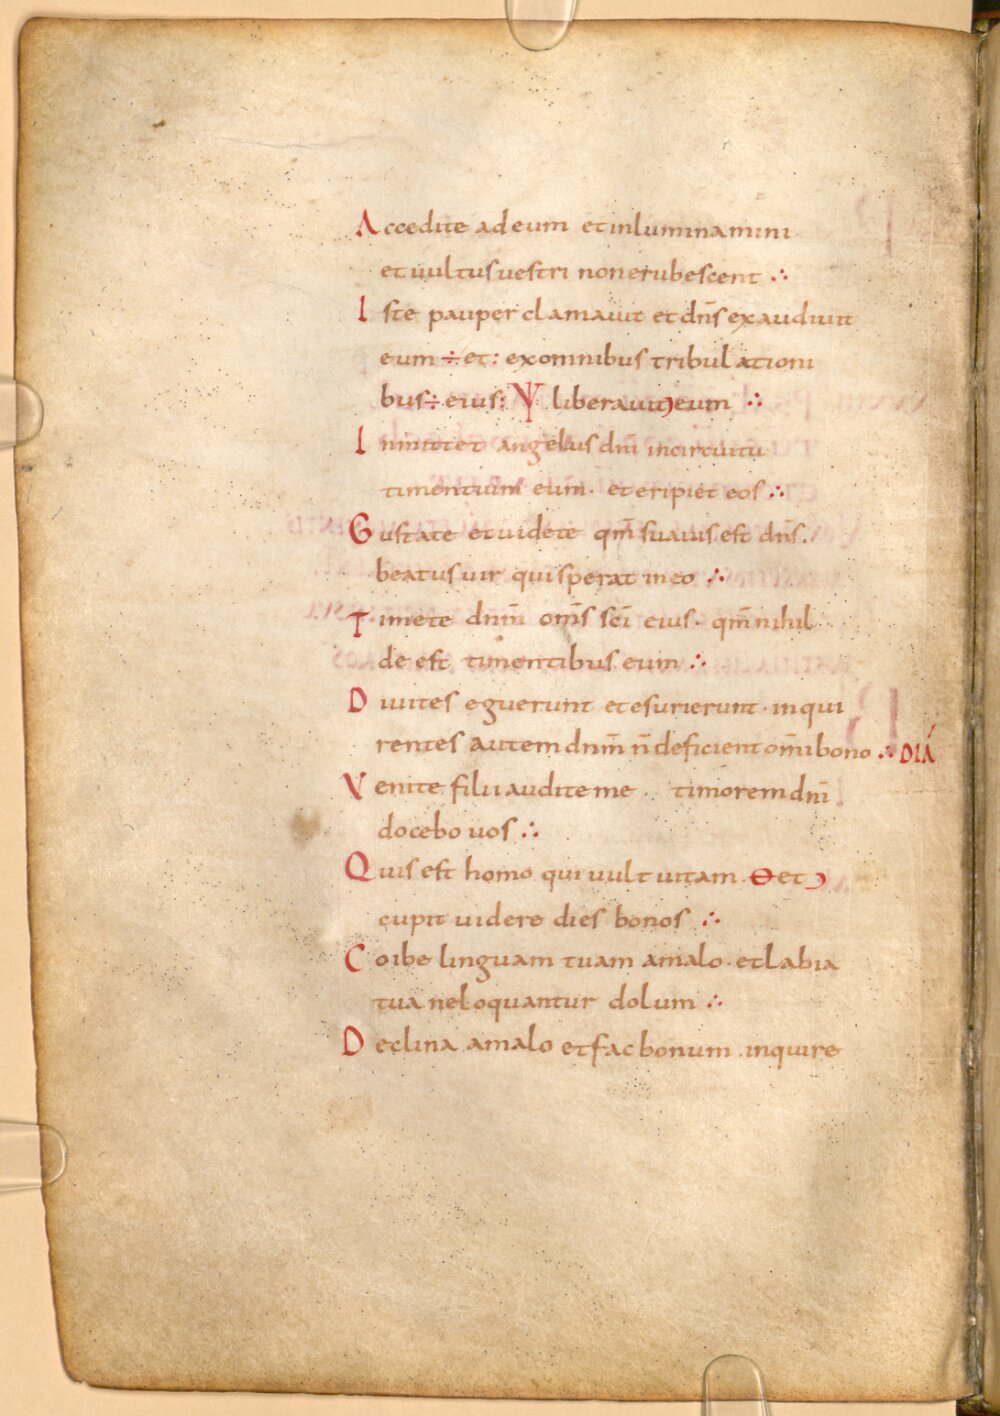 Accedite ad eum et inluminamini
et uultus uestri non erubescent ∴
Iste pauper clamauit et dn̄s exaudiuit
eum ÷ et: ex omnibus tribulationi
bus ÷ eius: Ψ liberauit) eum ∴
Inmittet angelus dn̄i in circuitu
timentium eum· et eripiet eos ∴
Gustate et uidete qm̄ suauis est dn̄s.
beatus uir qui sperat in eo ∴
Timete dnm̄ om̄s sc̄i eius· qm̄ nihil
de est timentibus eum ∴
Diuites eguerunt et esurierunt· inqui
rentes autem dnm̄ n̄ deficient om̄i bono ∴ DIÁ
Venite filii audite me · timorem dn̄i
docebo uos ∴
Quis est homo qui uult uitam · ɵ et )
cupit uidere dies bonos ∴
Coibe linguam tuam a malo· et labia
tua ne loquantur dolum ∴
Declina a malo et fac bonum · inquire